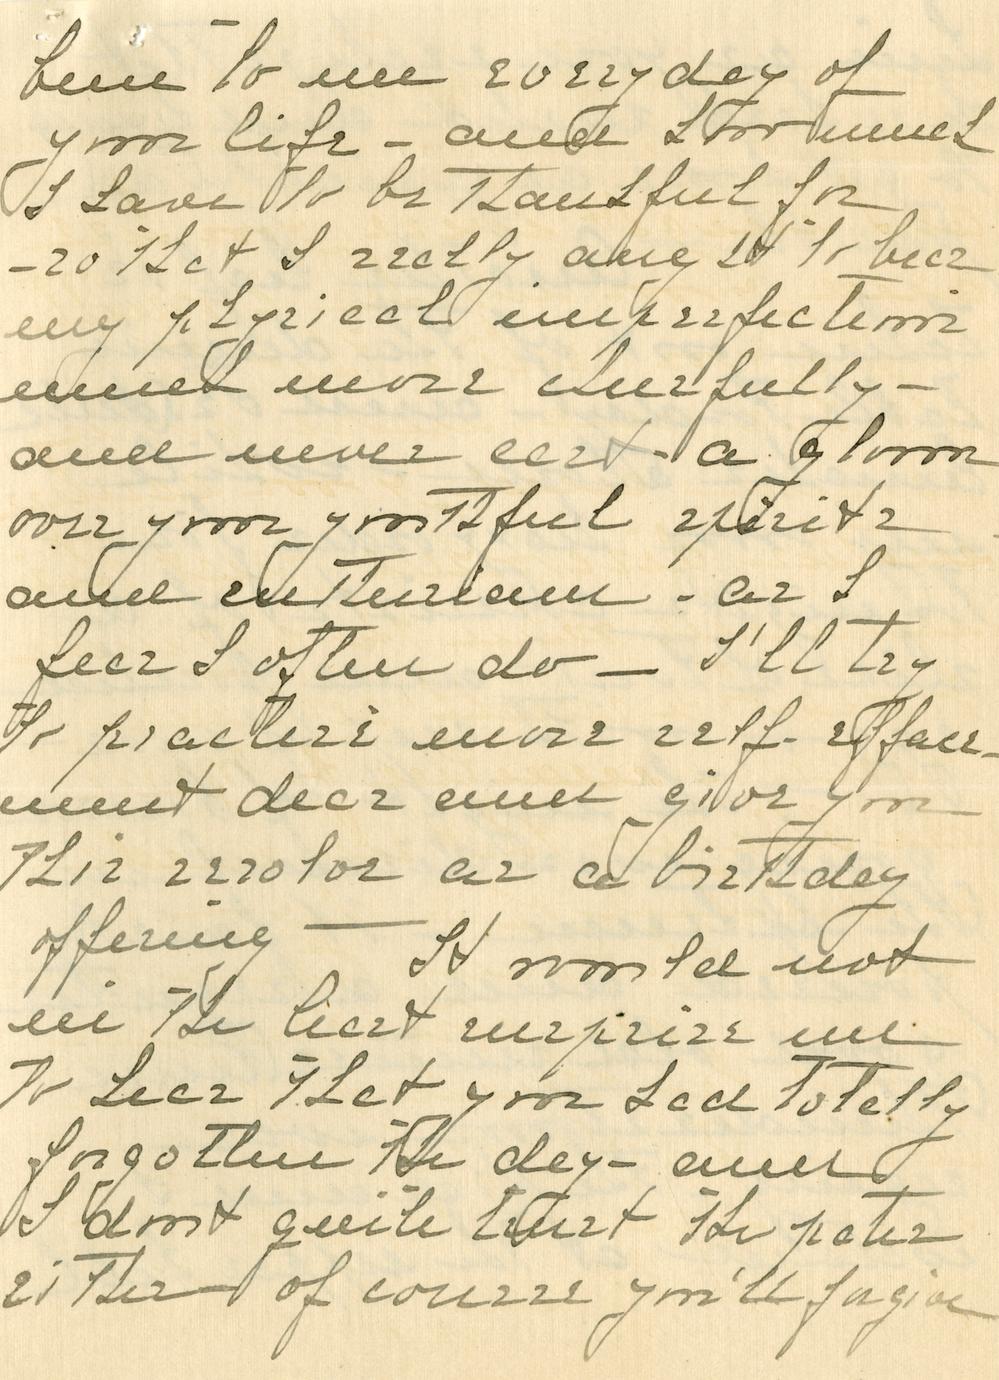 been to me everyday of
your life - and how much
I have to be thankful for
- so that I really aught to bear
my physical imperfections
much more cheerfully -
and never cast - a gloom
over your youthful spirits
and enthusiasm - as I
fear I often do — I'll try
to practise more self-efface-
ment dear and give you
this resolve as a birthday
offering — It would not
in the least surprise me
to hear that you had totally
forgotten the day - and
I don't quite trust the pater
either - of course you'll forgive